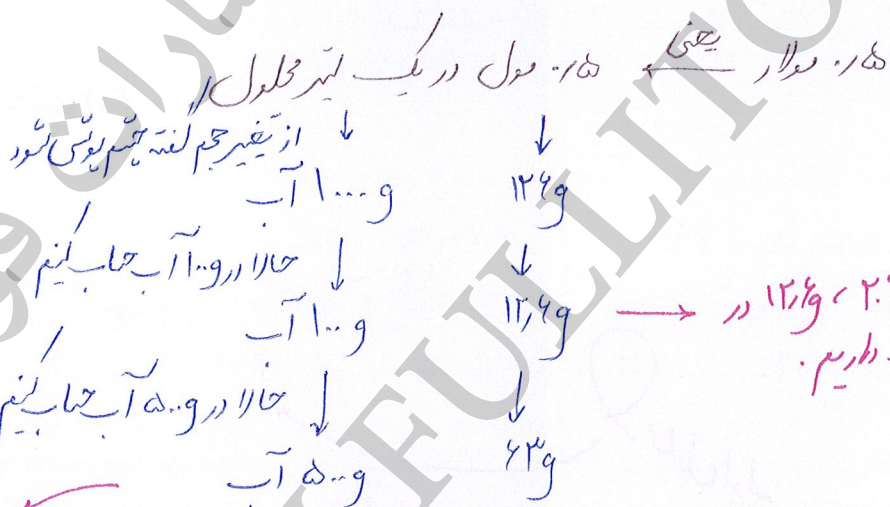 ۰/۵ مولار یعنی ۰/۵ مول در یک لیتر محلول
از تغییر حجم گفته چشم پوشی شود
۱۲۶g ۱۰۰۰g آب
حالا در ۱۰۰g آب حساب کنیم
۱۲/۶g ۱۰۰g آب
۱۲/۶g در
داریم.
حالا در ۵۰۰g آب حساب کنیم
۶۳g ۵۰۰g آب
FULLITO